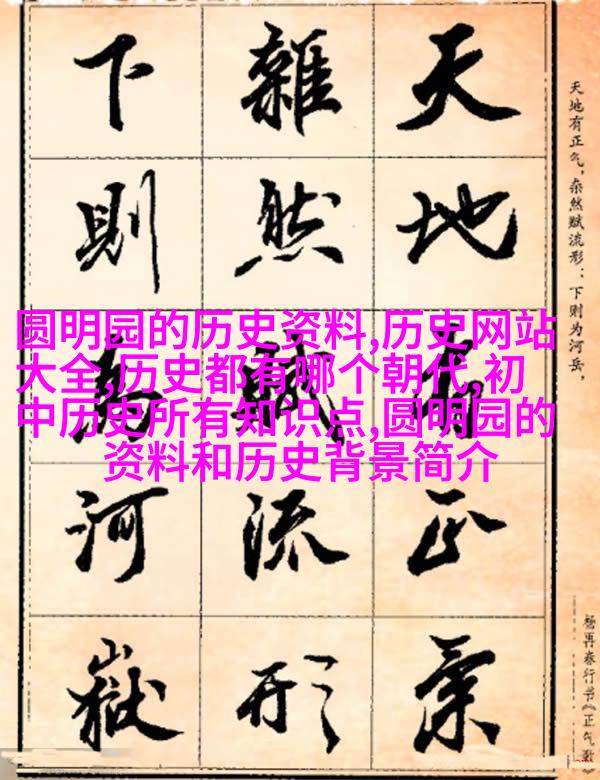 天地有正气，杂然赋流形：下则为河岳，
天地有正氣
雜然賦流形
下則為河嶽
圆明园的历史资料,历史网站
大全,历史都有哪个朝代,初
中历史所有知识点,圆明园的
资料和历史背景简介
杨再春行书《正气歌》